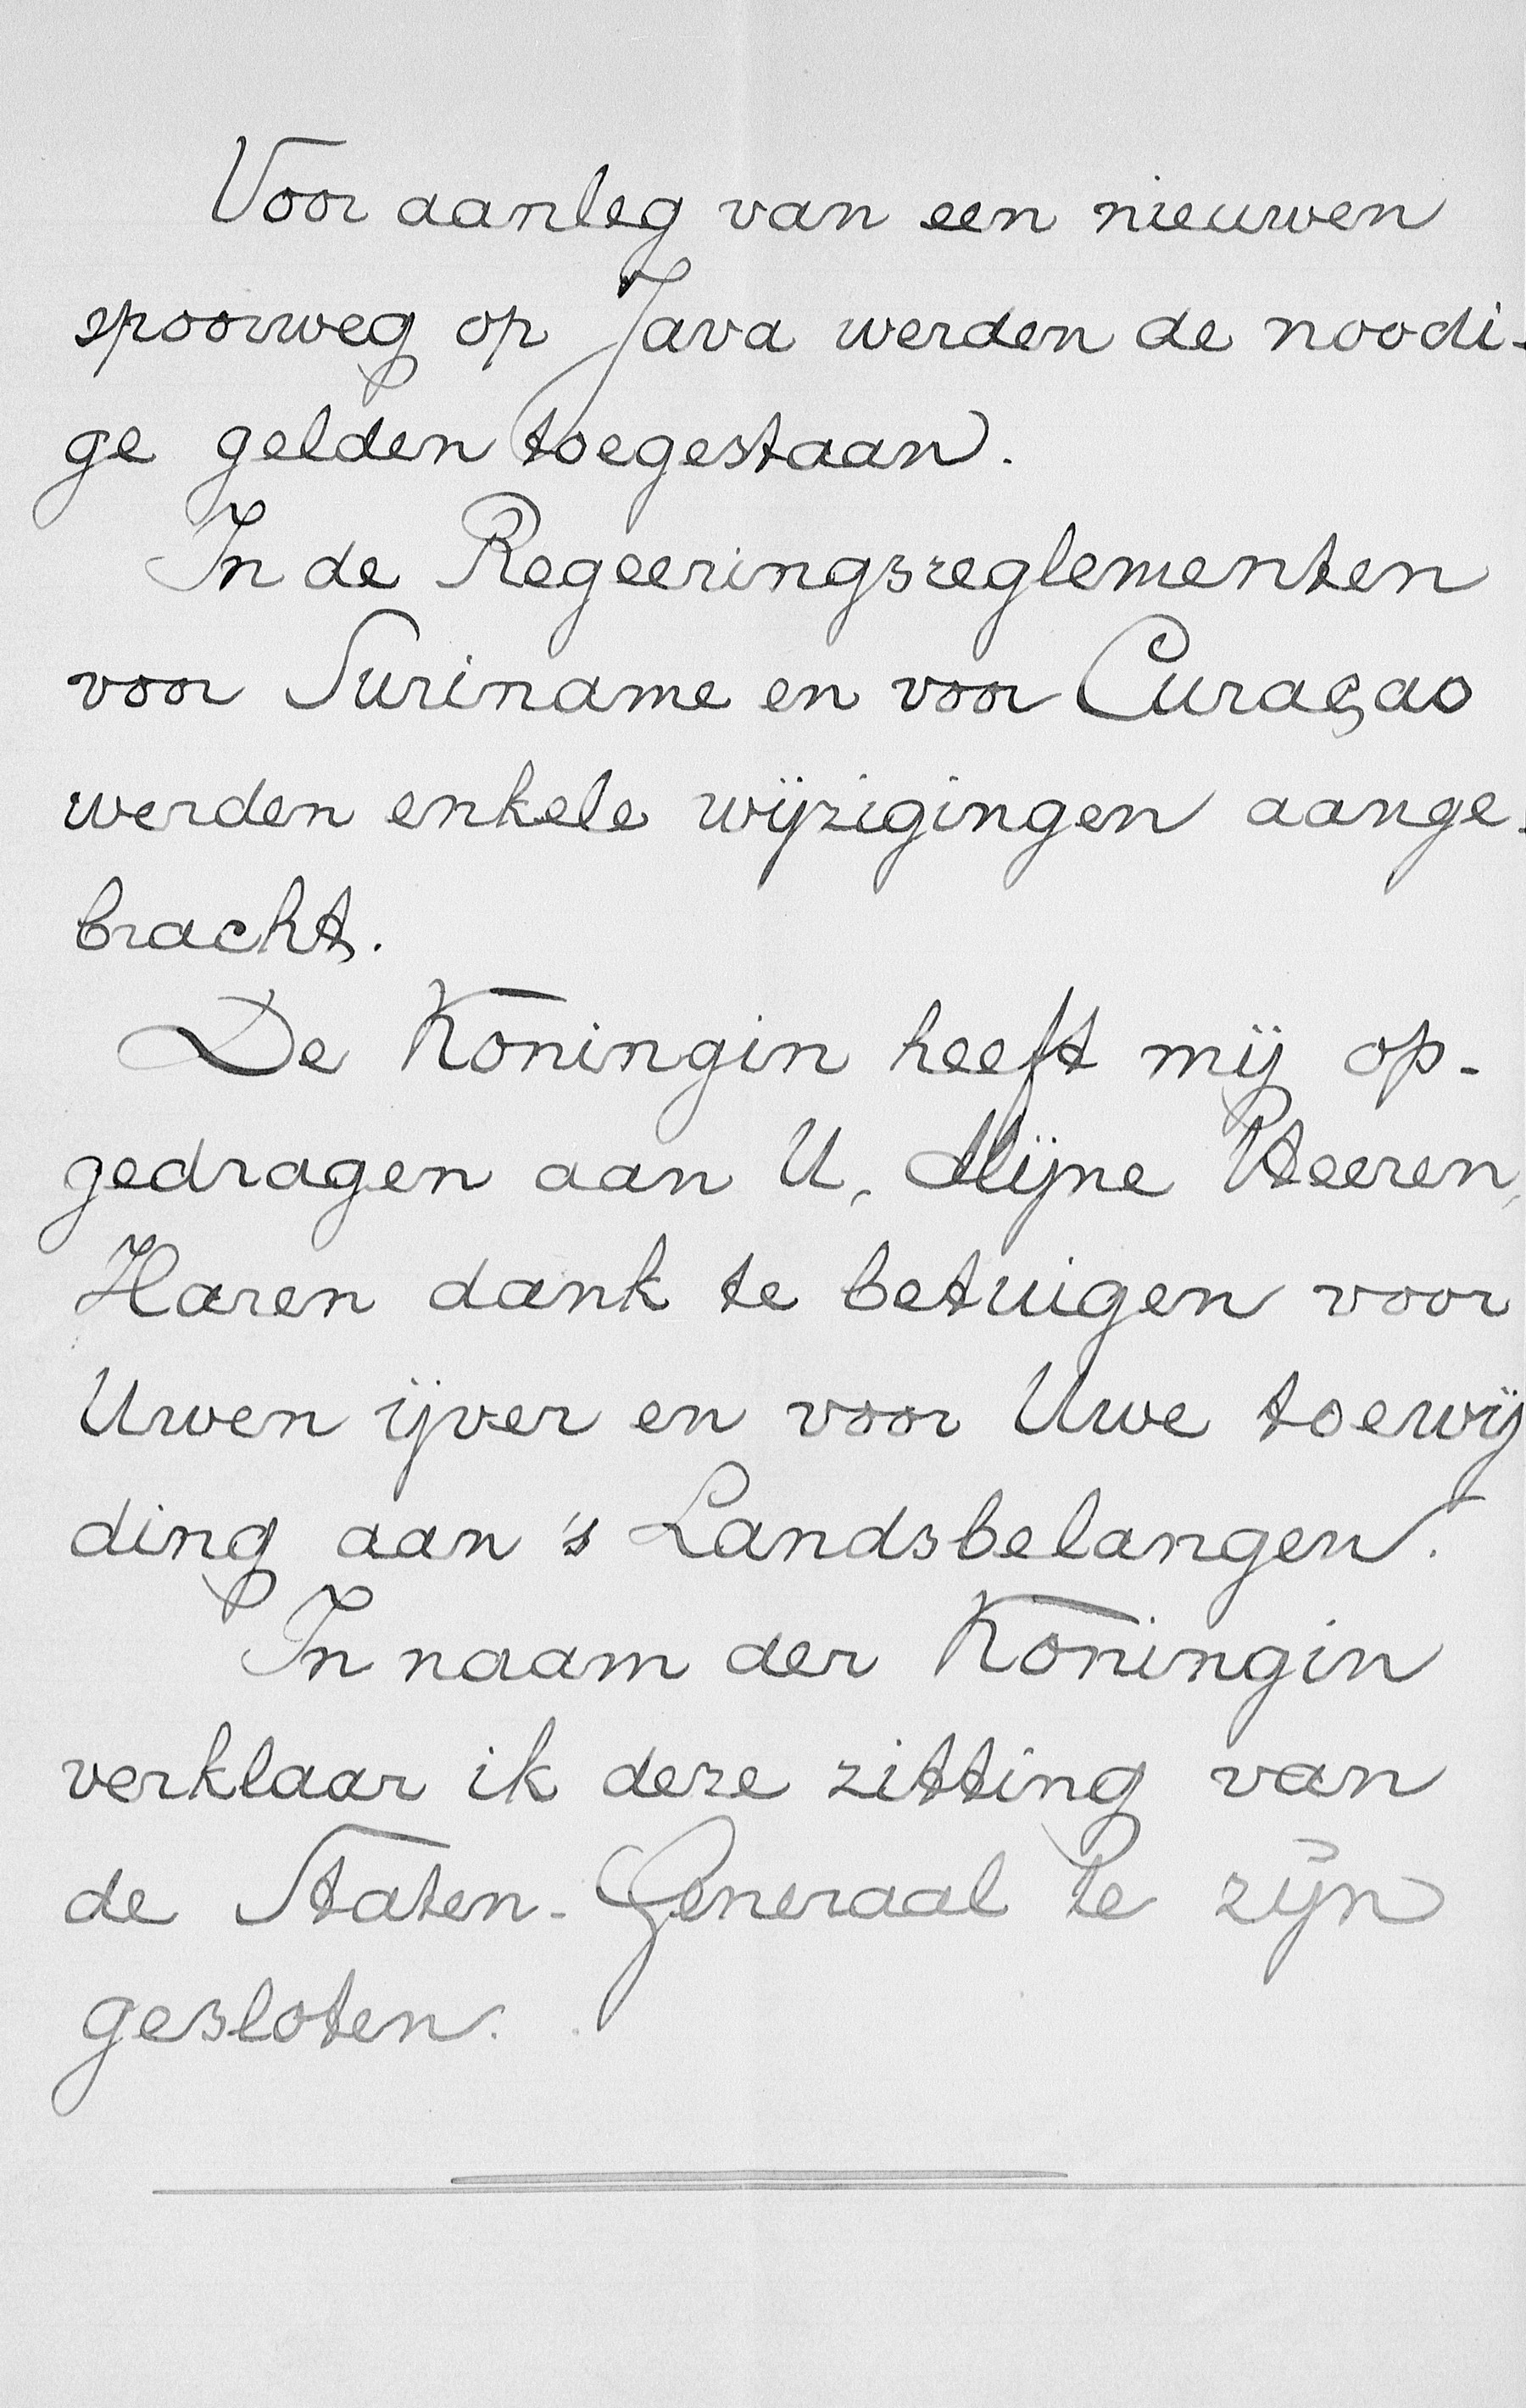 Voor aanleg van een nieuwen
spoorweg op Java werden de noodi-
ge gelden toegestaan.
In de Regeeringsreglementen
voor Suriname en voor Curaçao
werden enkele wijzigingen aange-
bracht.
De Koningin heeft mij op-
gedragen aan U, Mijne Heeren,
Haren dank te betuigen voor
Uwen ijver en voor Uwe toewij
ding aan 's Landsbelangen.
In naam der Koningin
verklaar ik deze zitting van
de Staten-Generaal te zijn
gesloten.